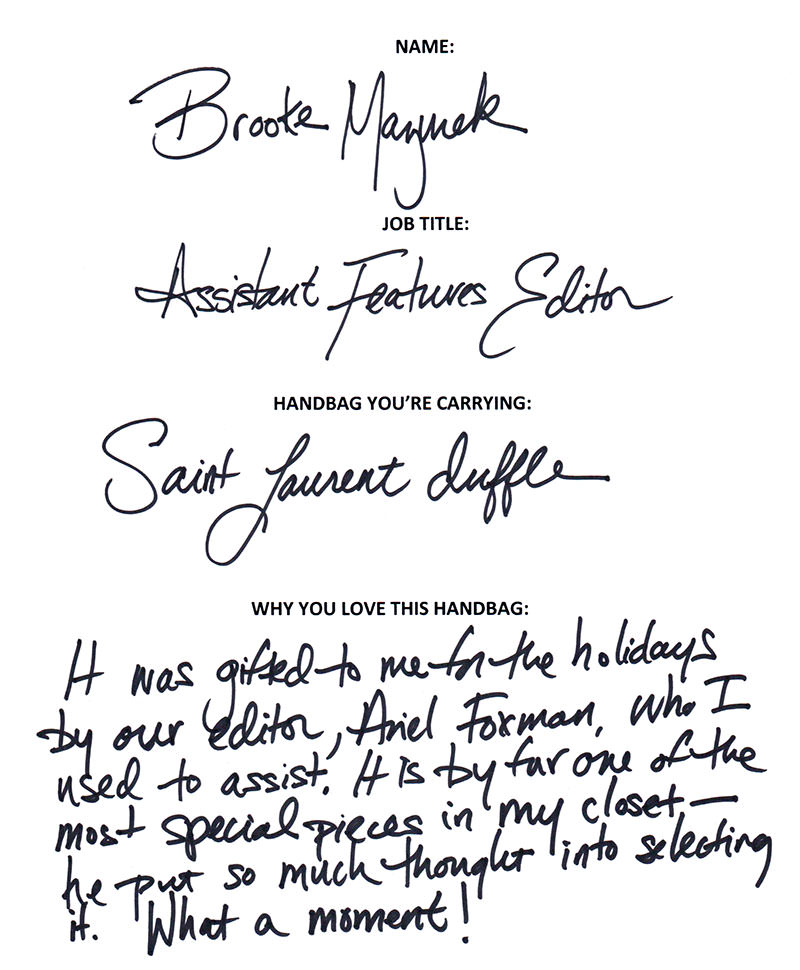 NAME:
Brooke Mazurek
JOB TITLE:
Assistant Features Editor
HANDBAG YOU'RE CARRYING:
Saint Laurent duffle
WHY YOU LOVE THIS HANDBAG:
It was gifted to me for the holidays
by our editor, Ariel Foxman, who I
used to assist. It is by far one of the
most special pieces in my closet—
he put so much thought into selecting
it. What a moment!